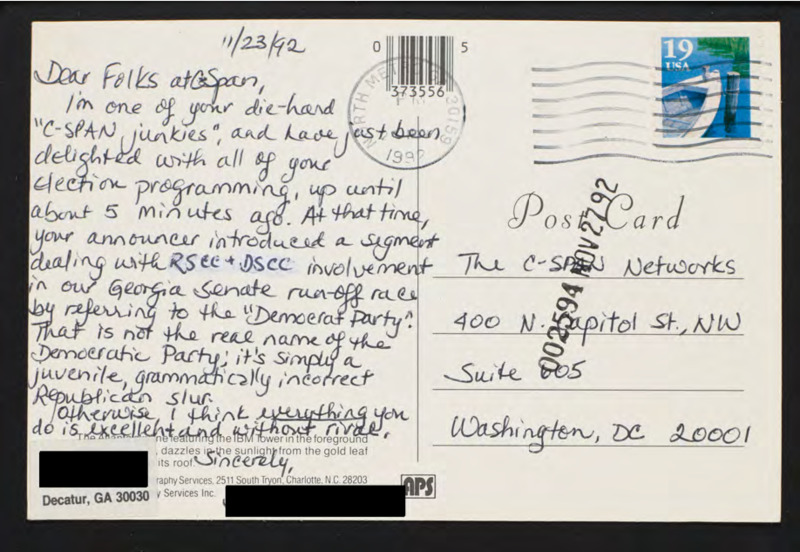 11/23/92
Dear Folks at C-Span,
I'm one of your die-hard
"C-SPAN junkies", and have just been
delighted with all of your
election programming, up until
about 5 minutes ago. At that time,
your announcer introduced a segment
dealing with RSCC + DSCC involvement
in our Georgia Senate run-off race
by referring to the "Democrat Party".
That is not the real name of the
Democratic Party; it's simply a
juvenile, grammatically incorrect
Republican slur.
Otherwise I think everything you
do is excellent and without rival.
Sincerely,
ne featuring the IBM Tower in the foreground
dazzles in the sunlight from the gold leaf
its roof.
raphy Services, 2511 South Tryon, Charlotte, N.C. 28203
y Services Inc.
Decatur, GA 30030
APS
0 5
373556
NORTH MET 30159
1992
19
USA
Post Card
002594 NOV 27 92
The C-SPAN Networks
400 N. Capitol St., NW
Suite 605
Washington, DC 20001